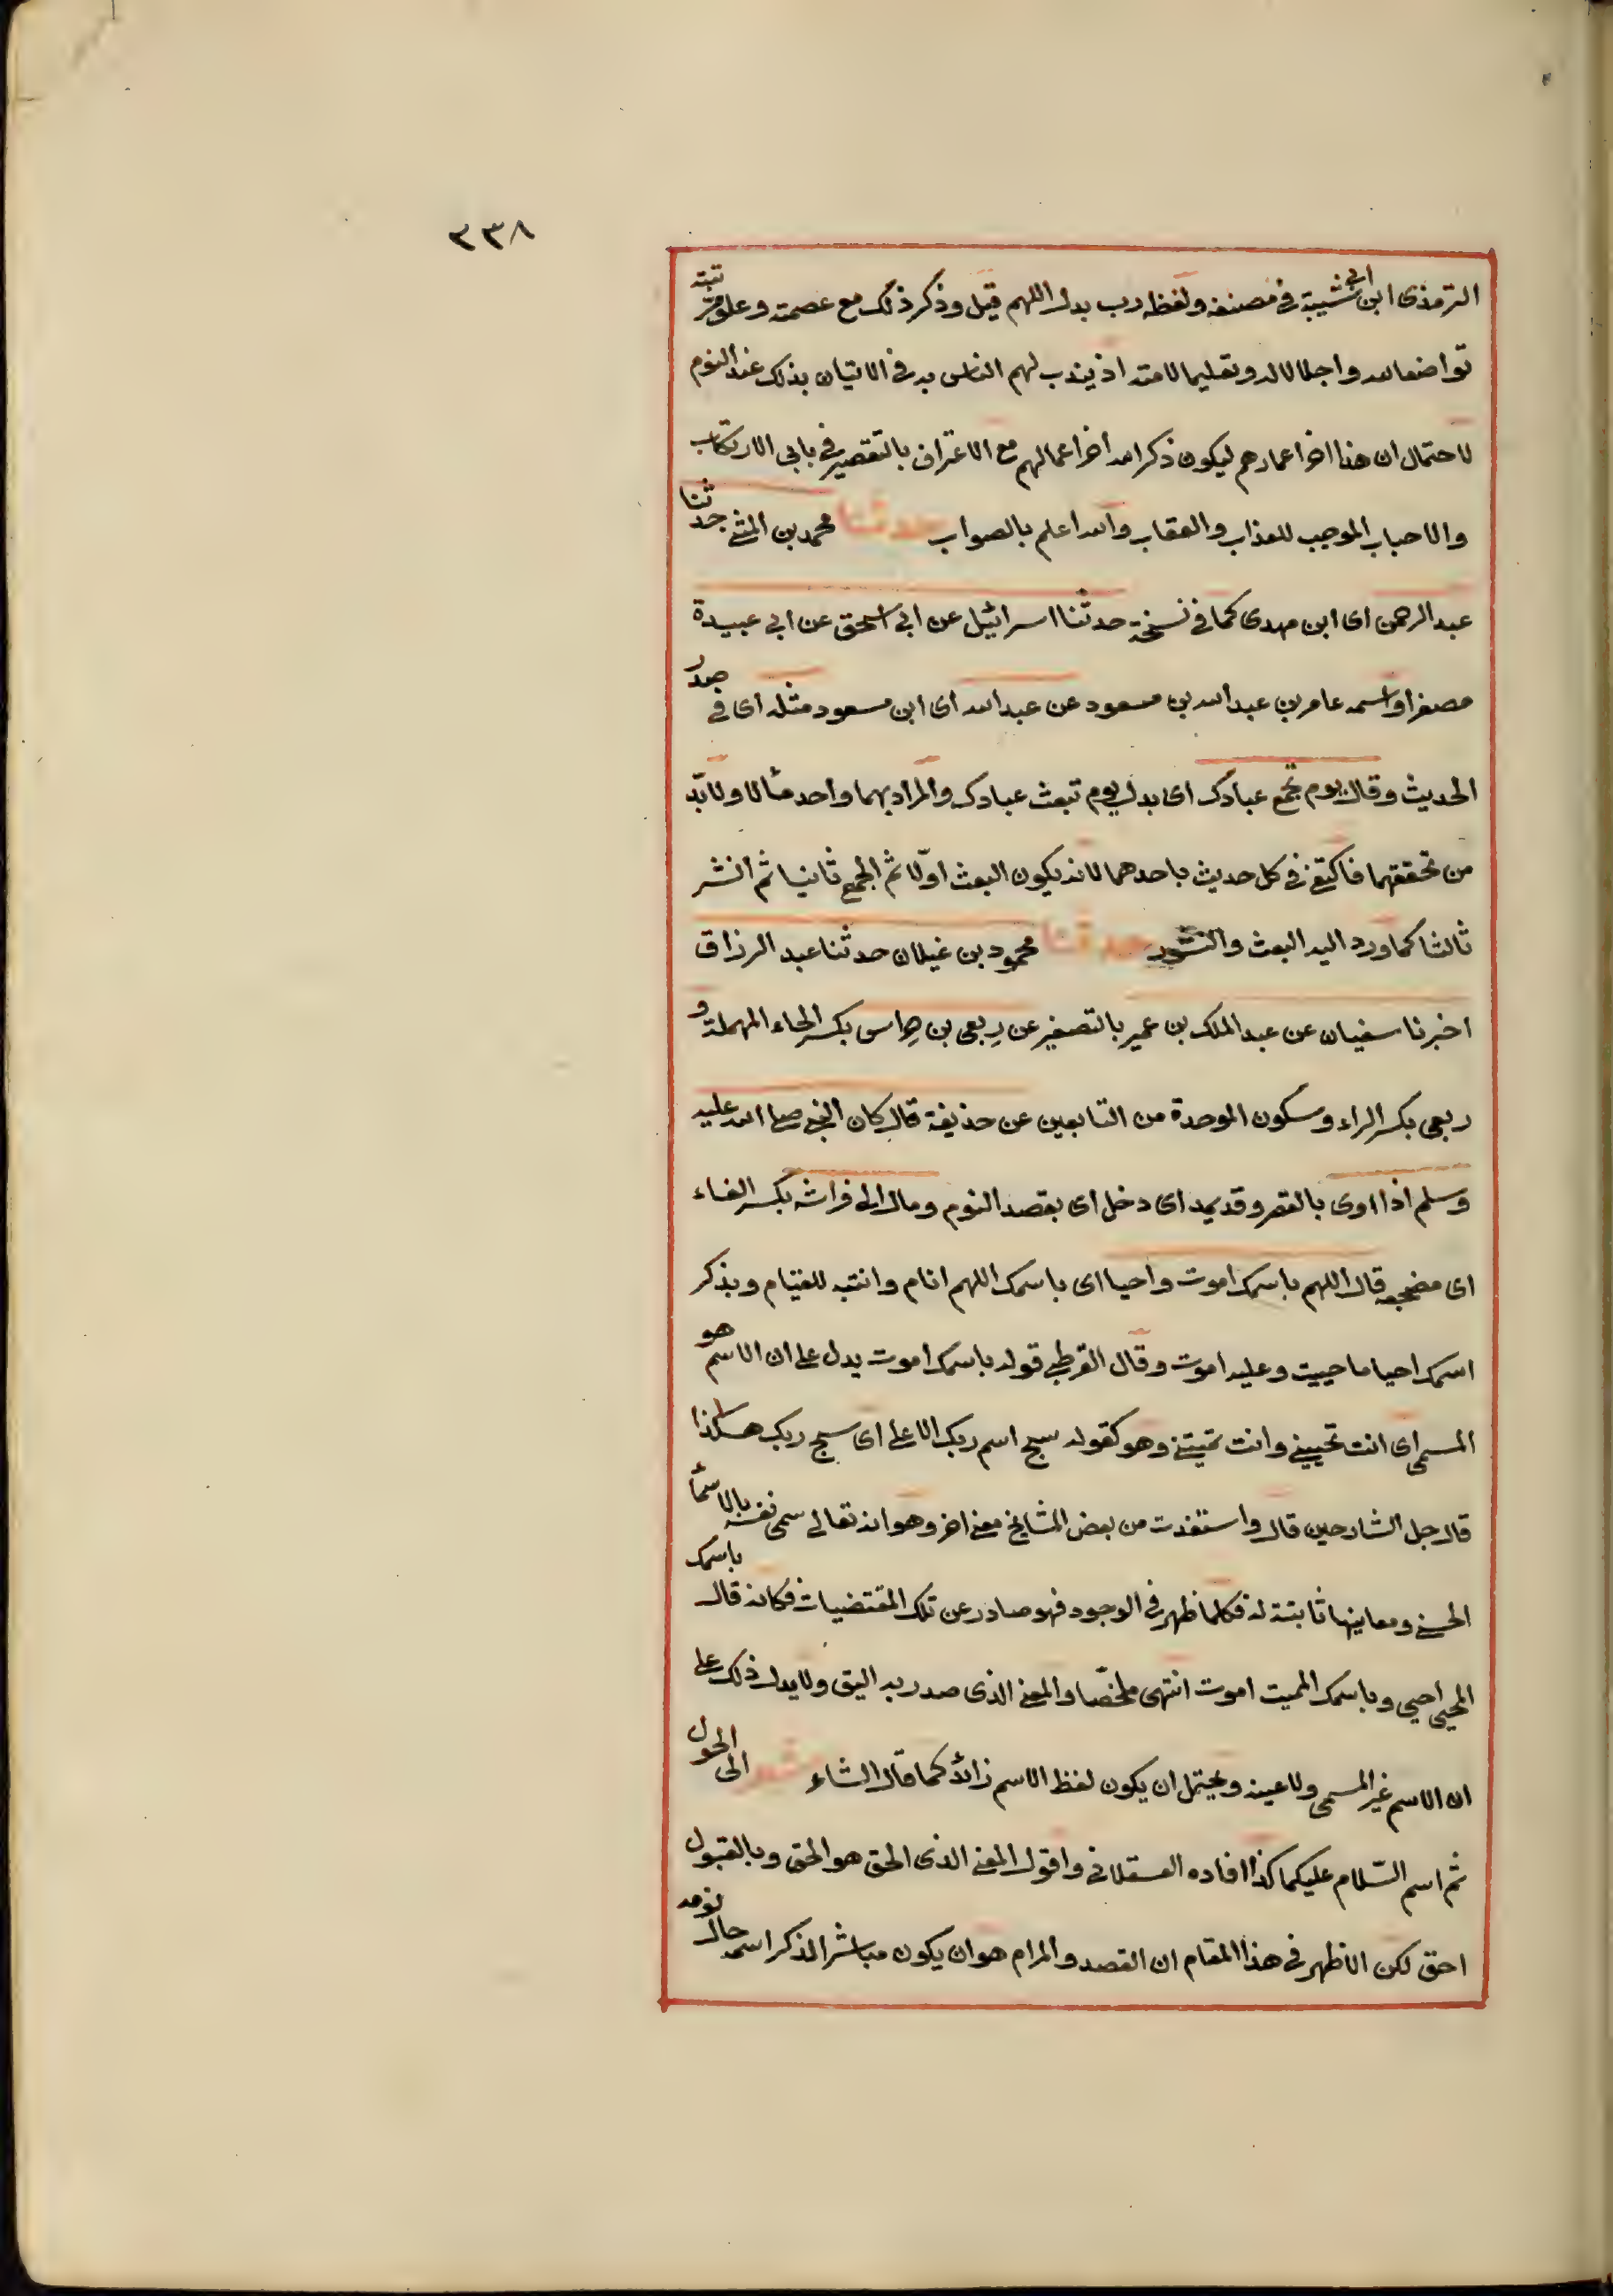 ٢٣٨
الترمذى ابن ابى شيبة فى مصنفه ولفظه رب بدل اللهم قيل وذكر ذلك مع عصمته وعلو مرتبته
تواضعا لله واجلالا له وتعليما لامته اذ يندب لهم التاسى به فى الاتيان بذلك عند النوم
لاحتمال ان هذا اخر اعمارهم ليكون ذكر الله آخر اعمالهم مع الاعتراف بالتقصير فى بابى الارتكاب
والاحباب الموجب للعذاب والعقاب والله اعلم بالصواب حدثنا محمد بن المثنى حدثنا
عبد الرحمن اى ابن مهدى كما فى نسخة حدثنا اسرائيل عن ابى اسحق عن ابى عبيدة
مصغرا واسمه عامر بن عبد الله بن مسعود عن عبد الله اى ابن مسعود مثله اى فى صدر
الحديث وقال يوم تجمع عبادك اى بدل يوم تبعث عبادك والمراد بهما واحد مثالا ولا بدّ
من تحققهما فاكتفى فى كل حديث باحدهما لانه يكون البعث اولا ثم الجمع ثانيا ثم النشر
ثالثا كما ورد اليه البعث والنشور حدثنا محمود بن غيلان حدثنا عبد الرزاق
اخبرنا سفيان عن عبد الملك بن عمير بالتصغير عن رِبعى بن حِراس بكسر الحاء المهملة و
ربعى بكسر الراء وسكون الموحدة من التابعين عن حذيفة قال كان النبى صلى الله عليه
وسلم اذا اوى بالقصر وقد يمد اى دخل اى بقصد النوم ومال الى فراشه بكسر الفاء
اى مضجعه قال اللهم باسمك اموت واحيا اى باسمك اللهم انام وانتبه للقيام وبذكر
اسمك احيا ما حييت وعليه اموت وقال القرطبى قوله باسمك اموت يدل على ان الاسم هو
المسمى اى انت تحيينى وانت تميتنى وهو كقوله سبح اسم ربك الاعلى اى سبح ربك هكذا
قال جل الشارحين قال واستفدت من بعض المشايخ معنى اخر وهو انه تعالى سمى نفسه بالاسماء
الحسنى ومعاينها ثابتة له فكلما ظهر فى الوجود فهو صادر عن تلك المقتضيات فكانه قال باسمك
المحيى احيى وباسمك المميت اموت انتهى ملخصّا والمعنى الذى صدر به اليق ولا يدل ذلك على
ان الاسم غير المسمى ولا عينه ويحتمل ان يكون لفظ الاسم زائدا كما قال الشاعر شعر الى الحول
ثم اسم السّلام عليكما كذا افاده العسقلانى واقول المعنى الذى الحق هو الحق وبالقبول
احق لكن الاظهر فى هذا المقام ان القصد والمرام هو ان يكون مباشر الذكر اسمه حال نومه